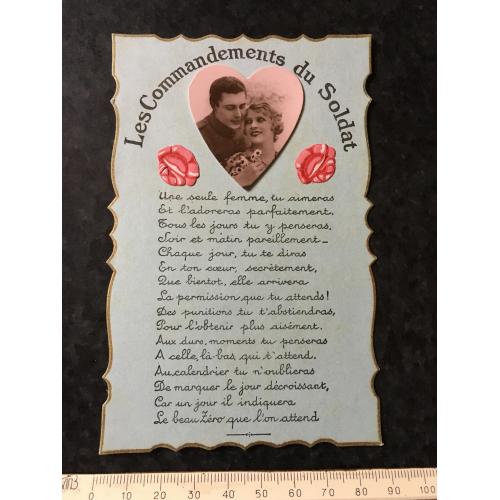 Les Commandements du Soldat
Une seule femme, tu aimeras
Et l'adoreras parfaitement.
Tous les jours tu y penseras,
Soir et matin pareillement_
Chaque jour, tu te diras
En ton cœur, secrètement,
Que bientot, elle arrivera
La permission que tu attends!
Des punitions tu t'abstiendras,
Pour l'obtenir plus aisément.
Aux durs, moments tu penseras
A celle, là-bas, qui t'attend.
Au calendrier tu n'oublieras
De marquer le jour décroissant,
Car un jour il indiquera
Le beau Zéro que l'on attend
0 10 20 30 40 50 60 70 80 90 100